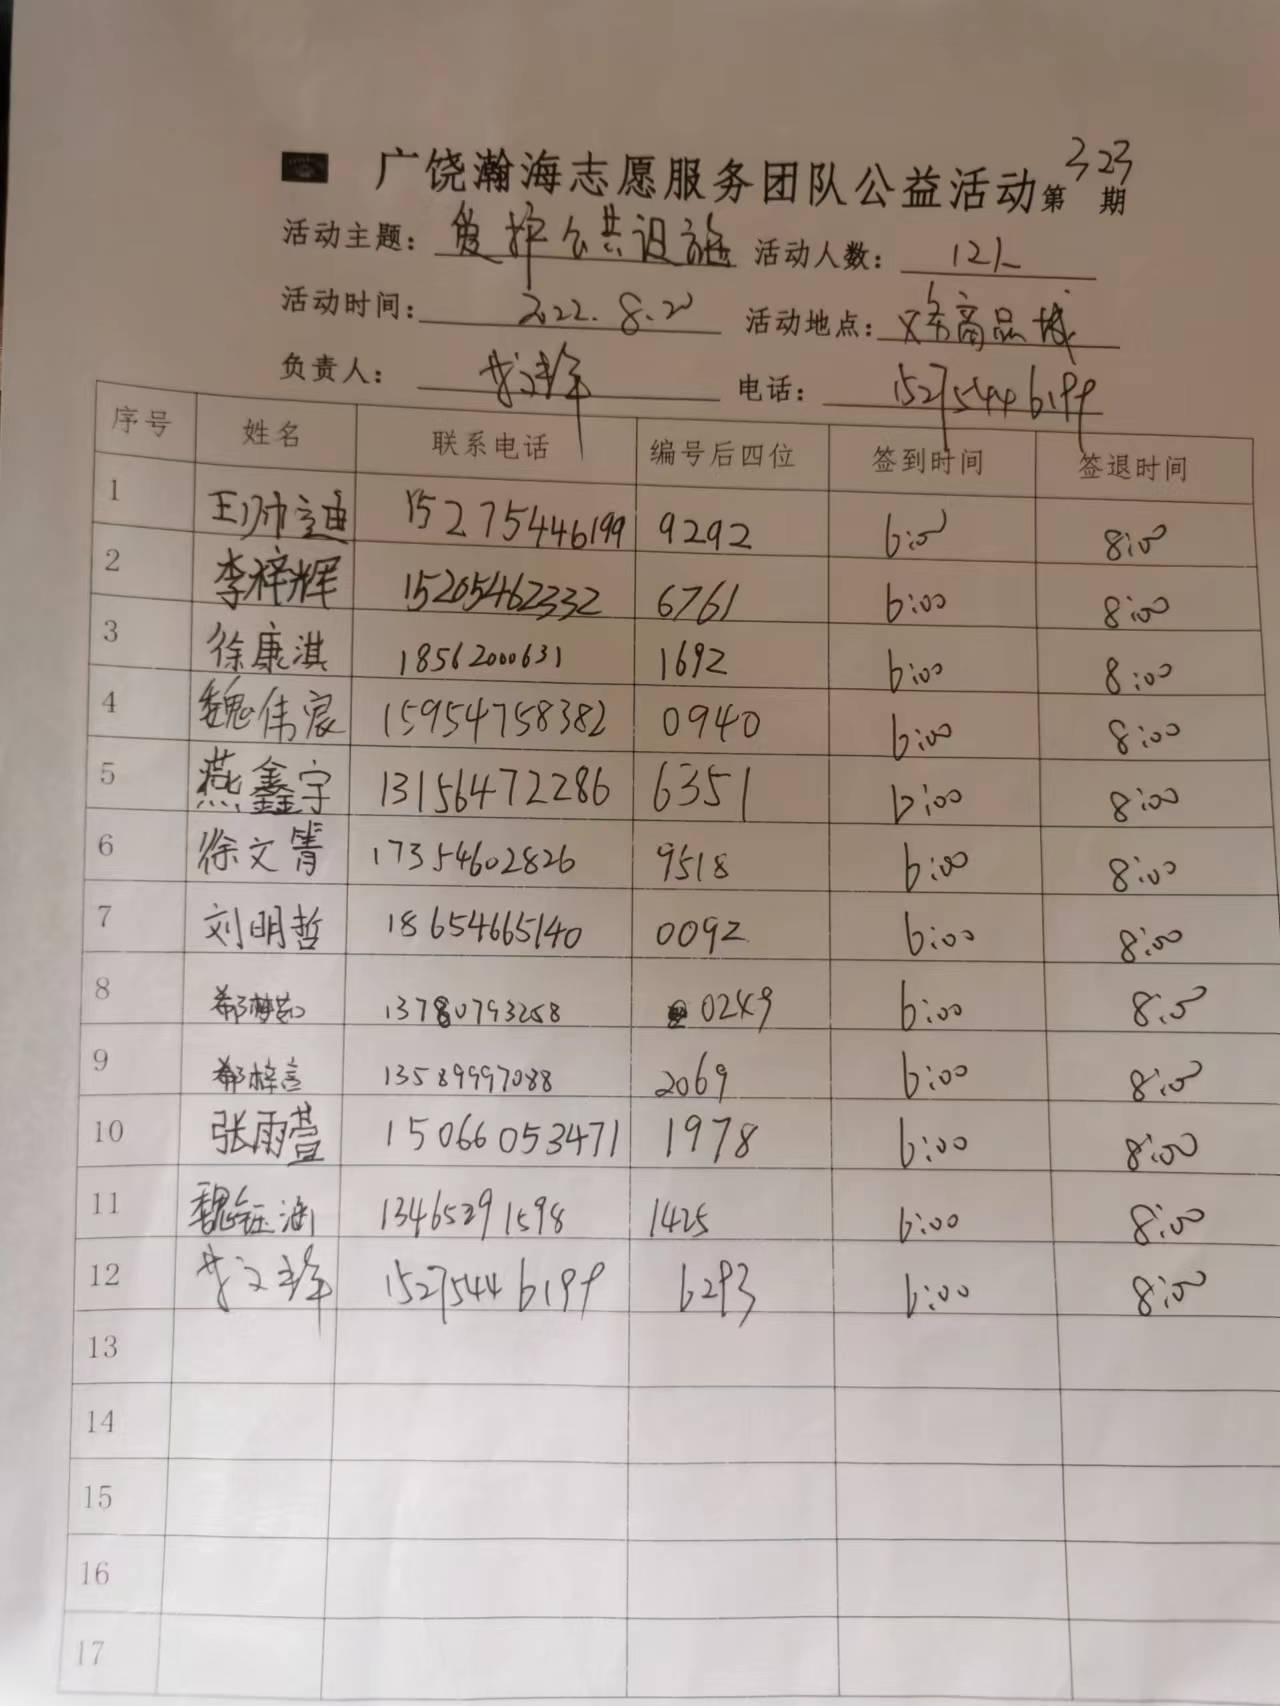 广饶瀚海志愿服务团队公益活动第323期
活动主题： 爱护公共设施 活动人数： 12人
活动时间： 2022.8.20 活动地点： 义务商品城
负责人： 电话： 15275446199
序号 姓名 联系电话 编号后四位 签到时间 签退时间
1 王帅童迪 15275446199 9292 6:00 8:00
2 李梓辉 15205462332 6761 6:00 8:00
3 徐康淇 18562000631 1692 6:00 8:00
4 魏伟宸 15954758382 0940 6:00 8:00
5 燕鑫宇 13156472286 6351 6:00 8:00
6 徐文箐 17354602826 9518 6:00 8:00
7 刘明哲 18654665140 0092 6:00 8:00
8 13780793258 0249 6:00 8:00
9 郗梓言 13589997088 2069 6:00 8:00
10 张雨萱 15066053471 1978 6:00 8:00
11 魏钰涵 13465291598 1425 6:00 8:00
12 15275446199 6293 6:00 8:00
13
14
15
16
17